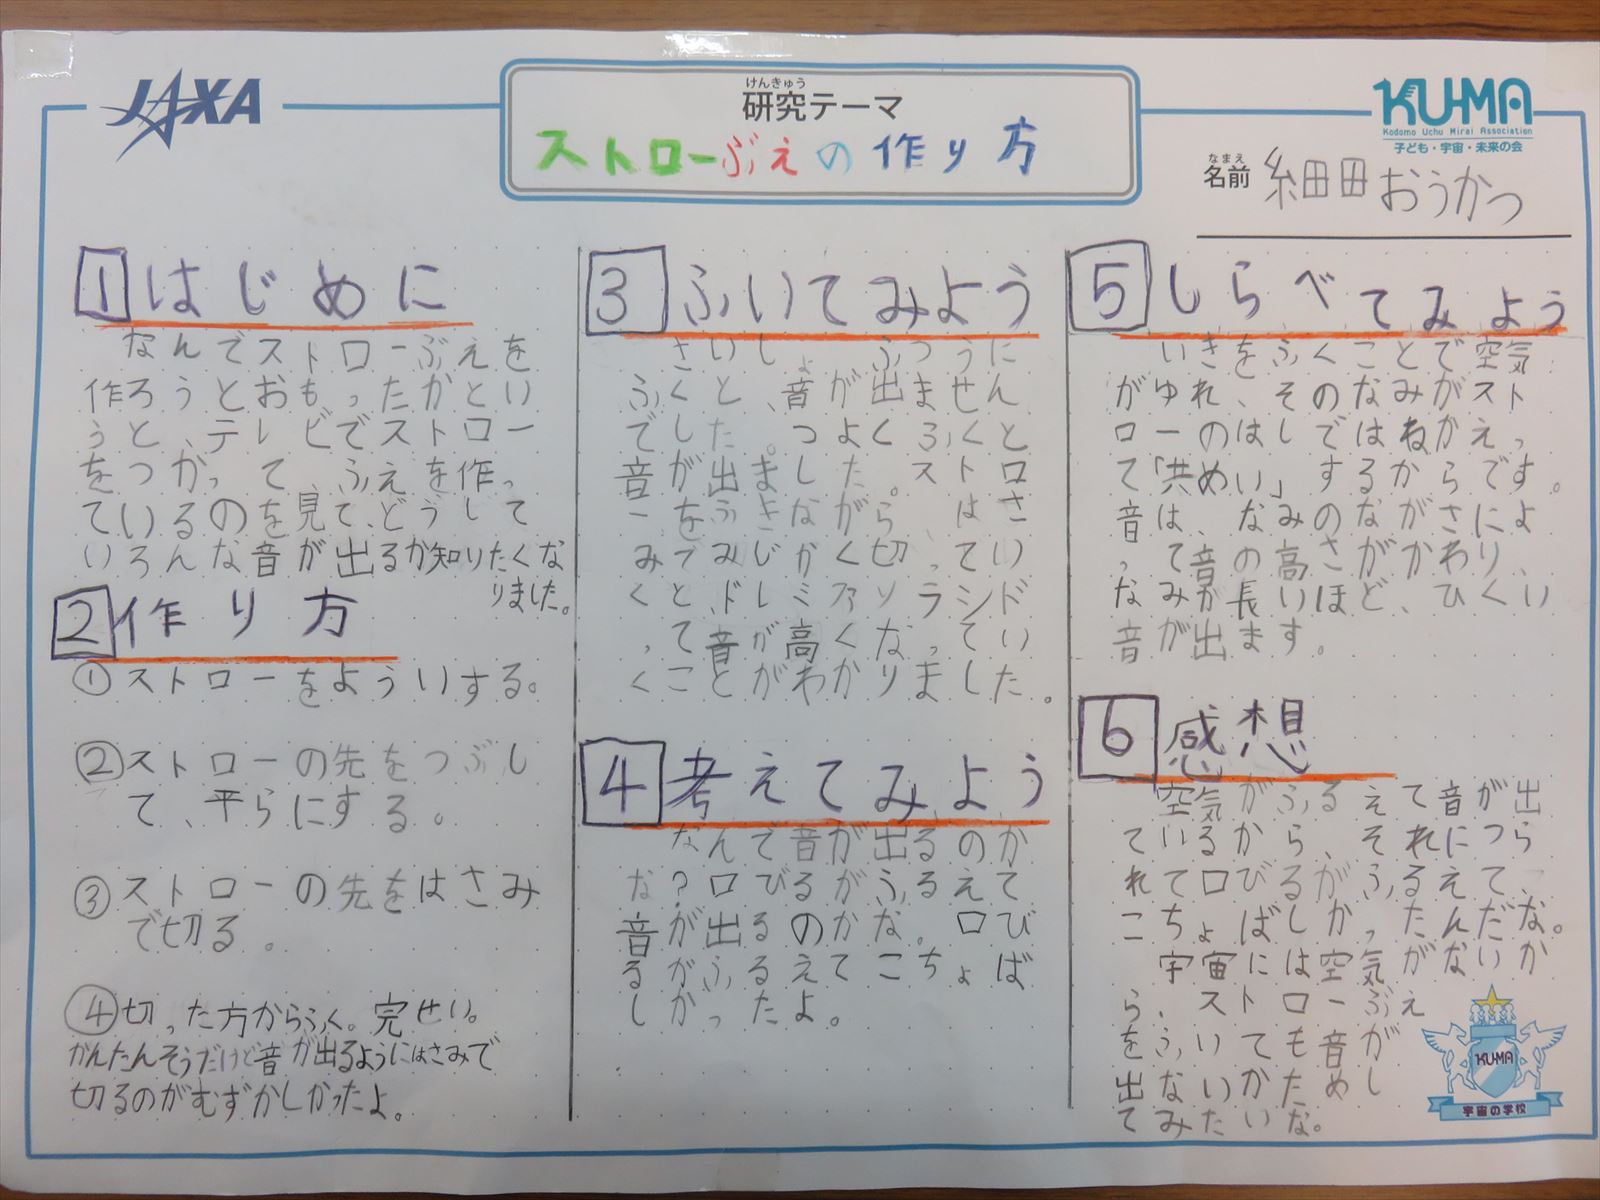 JAXA
けんきゅう
研究テーマ
ストローぶえの作り方
KU-MA
Kodomo Uchu Mirai Association
子ども・宇宙・未来の会
なまえ
名前 細田おうかつ
1 はじめに
なんでストローぶえを
作ろうとおもったかとい
うと、テレビでストロー
をつかって、ふえを作っ
ているのを見て、どうして
いろんな音が出るか知りたくな
りました。
2 作り方
①ストローをよういする。
②ストローの先をつぶし
て、平らにする。
③ストローの先をはさみ
で切る。
④切った方からふく。完せい。
かんたんそうだけど音が出るようにはさみで
切るのがむずかしかったよ。
3 ふいてみよう
さいしょふつうに
ふくと、音が出ません
でした。つよくふくと
音が出ました。ストロ
ーをふきながら、はさ
みでみじかく切ってい
くと、ドレミファソラシド
って音が高くなってい
くことがわかりました。
4 考えてみよう
なんで音が出るのか
な?口びるがふるえて
音が出るのかな。口び
るがふるえてこちょば
しかったよ。
5 しらべてみよう
いきをふくことで空気
がゆれ、そのなみがスト
ローのはしではねかえっ
て「共めい」するからです。
音は、なみのながさによ
って音の高さがかわり、
なみが長いほど、ひくい
音が出ます。
6 感想
空気がふるえて音が出
ているから、それにつら
れて口びるがふるえて、
こちょばしかったんだな。
宇宙には空気がないか
ら、ストローぶえ
をふいても音が
出ないかためし
てみたいな。
KU-MA
宇宙の学校